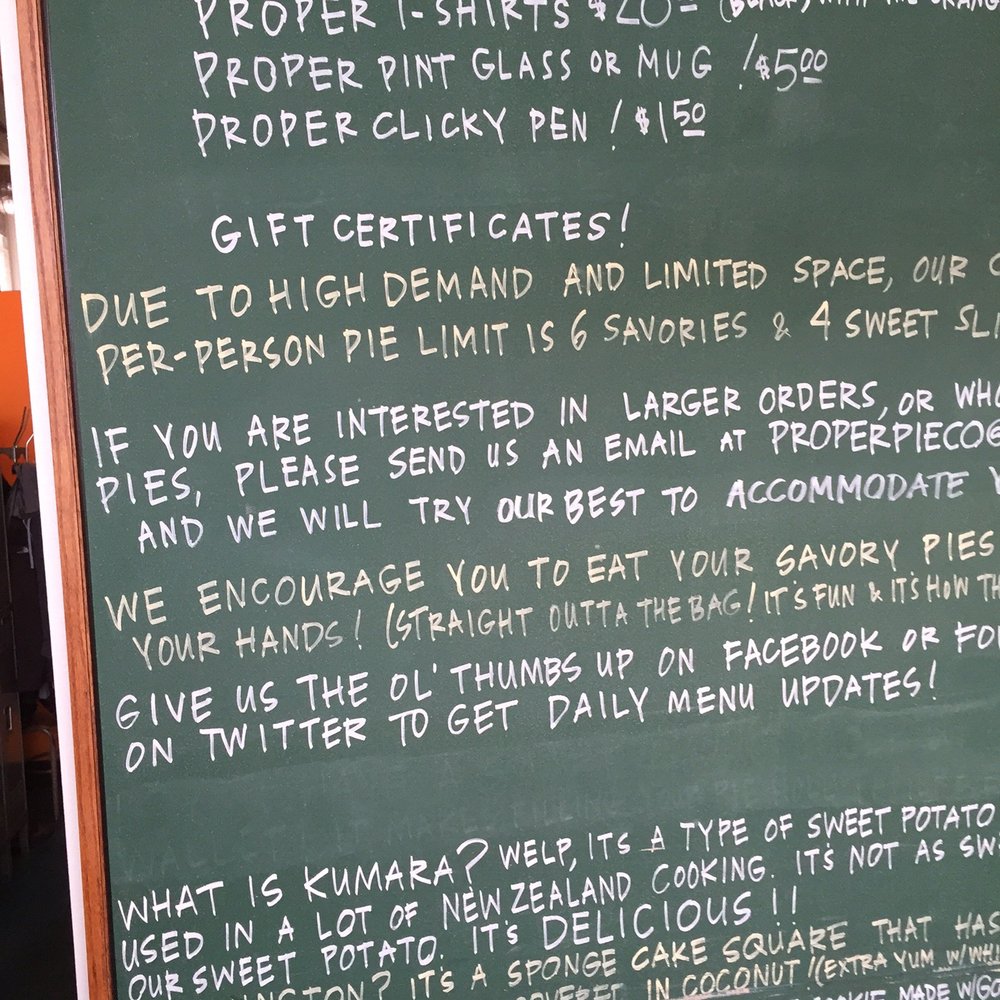 PROPER T-SHIRTS $20.00
PROPER PINT GLASS OR MUG ! $5.00
PROPER CLICKY PEN ! $1.50
GIFT CERTIFICATES!
DUE TO HIGH DEMAND AND LIMITED SPACE, OUR
PER-PERSON PIE LIMIT IS 6 SAVORIES & 4 SWEET SLI
IF YOU ARE INTERESTED IN LARGER ORDERS, OR WHO
PIES, PLEASE SEND US AN EMAIL AT PROPERPIECO@
AND WE WILL TRY OUR BEST TO ACCOMMODATE Y
WE ENCOURAGE YOU TO EAT YOUR SAVORY PIES
YOUR HANDS! (STRAIGHT OUTTA THE BAG! IT'S FUN & IT'S HOW TH
GIVE US THE OL' THUMBS UP ON FACEBOOK OR FO
ON TWITTER TO GET DAILY MENU UPDATES!
WHAT IS KUMARA? WELP, ITS A TYPE OF SWEET POTATO
USED IN A LOT OF NEW ZEALAND COOKING. IT'S NOT AS SW
OUR SWEET POTATO. IT'S DELICIOUS!!
INGTON? IT'S A SPONGE CAKE SQUARE THAT HAS
IN COCONUT! (EXTRA YUM W/WHI
MADE W/GO